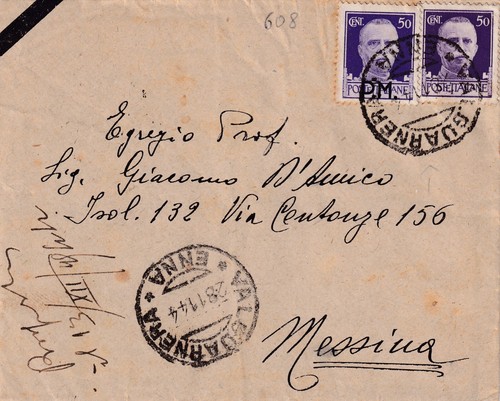 608
CENT. 50
CENT. 50
POSTE ITALIANE
P.M.
POSTE ITALIANE
VALGUARNERA
Egregio Prof.
Sig. Giacomo D'Amico
Isol. 132 Via Centonze 156
* VALGUARNERA * ENNA
28.11.44
Messina